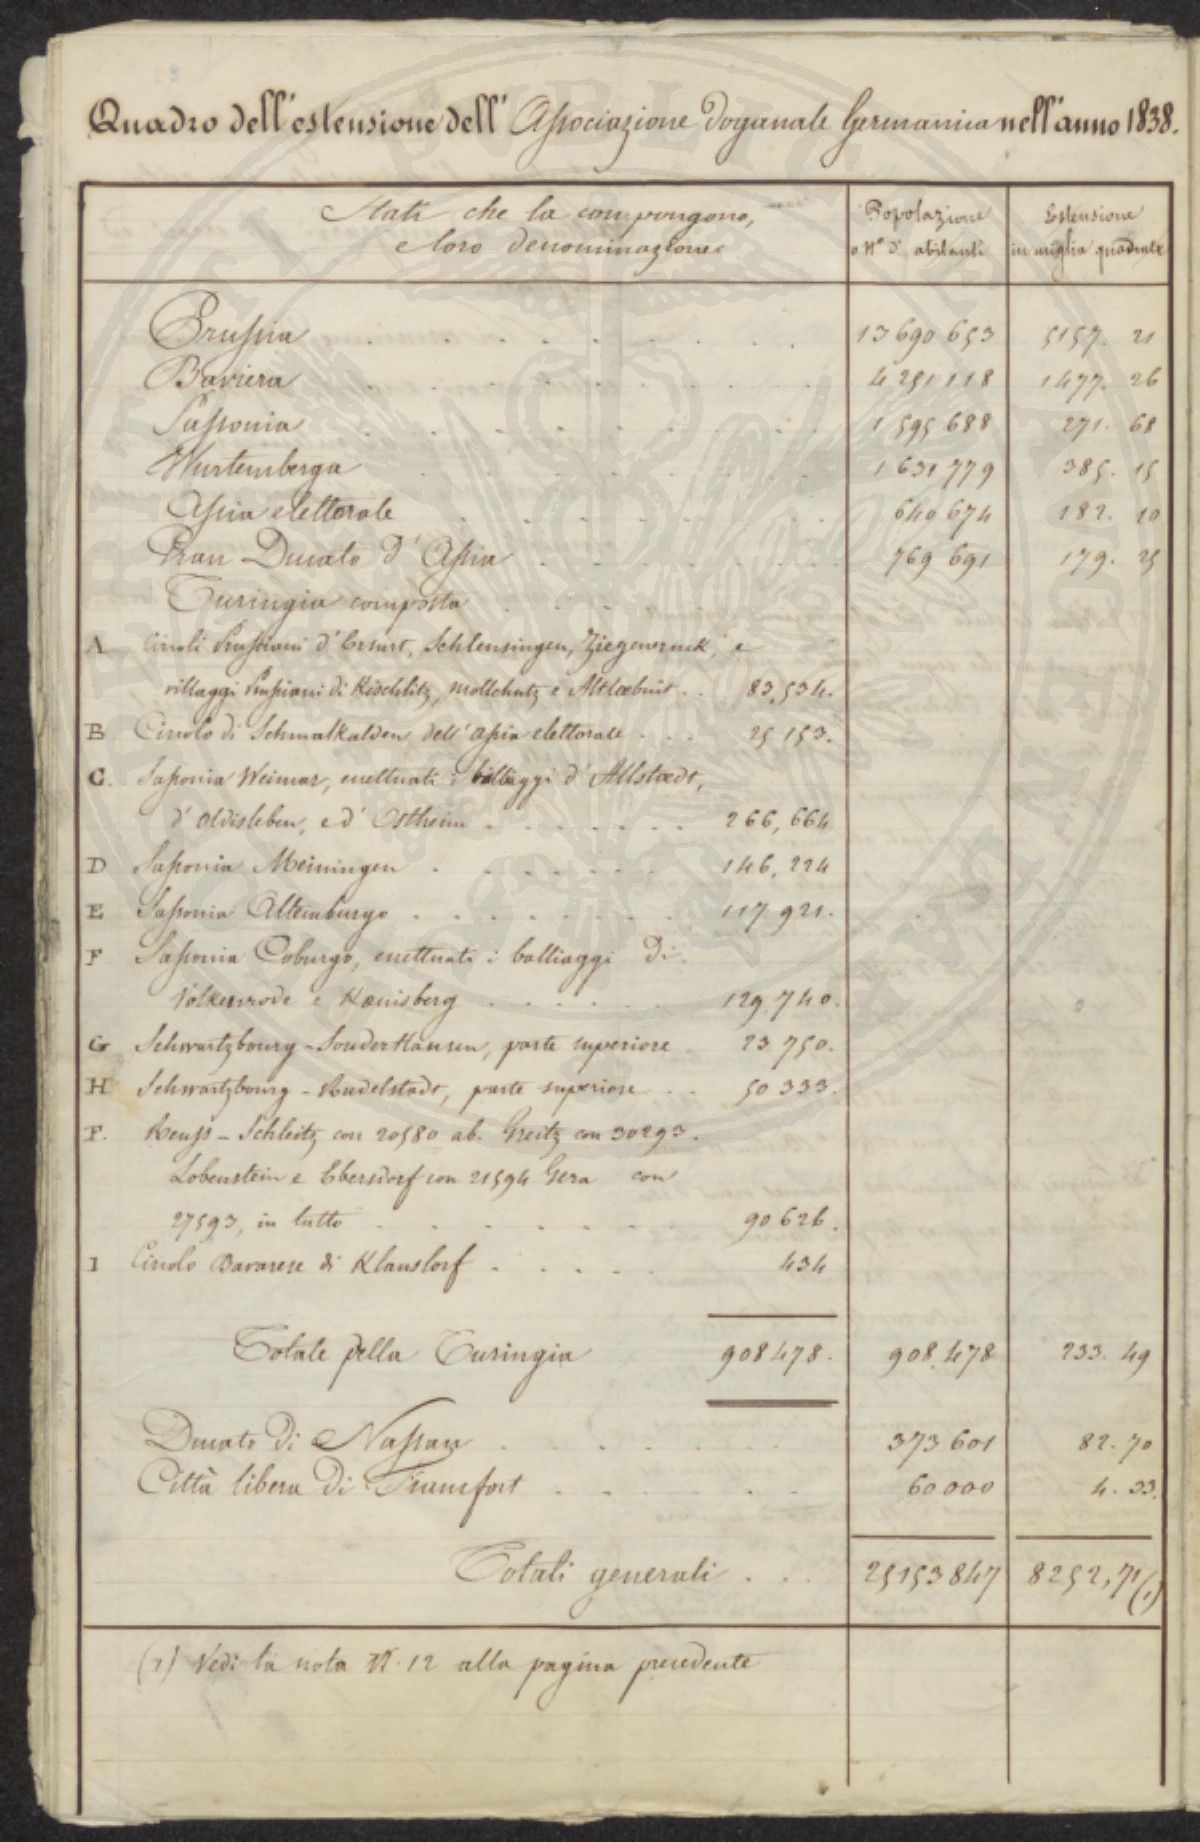 Quadro dell'estensione dell'Associazione doganale Germanica nell'anno 1838.
Stati che la compongono, e loro denominazione
Popolazione o N.º d'abitanti
Estensione in miglia quadrate
Prussia 13 690 653 5157. 21
Baviera 4 251 118 1477. 26
Sassonia 1 595 688 271. 68
Wurtemberga 1 631 779 385. 15
Assia elettorale 640 674 182. 10
Gran Ducato d'Assia 769 691 179. 25
Turingia composta
A Circoli Prussiani d'Erfurt, Schleusingen, Ziegenruck, e
villaggi Prussiani di Kischlitz, Mollchutz e Altlœbnit 83,534.
B Circolo di Schmalkalden dell'Assia elettorale 25 153.
C. Sassonia Weimar, eccettuati i balliaggi d'Allstaedt,
d'Oldisleben, e d'Ostheim 266,664
D Sassonia Meiningen 146,224
E Sassonia Altemburgo 117 921.
F Sassonia Coburgo, eccettuati i balliaggi di
Volkenrode e Kœnisberg 129.740.
G Schwartzbourg-Sonderhausen, parte superiore 23 750.
H Schwartzbourg-Rudelstadt, parte superiore 50 333.
F. Reuss-Schleitz con 20580 ab. Greitz con 30293.
Lobenstein e Ebersdorf con 21594 Gera con
27593, in tutto 90 626.
I Circolo Bavarese di Klanslorf 434
Totale della Turingia 908 478. 908.478 233. 49
Ducato di Nassau 373 601 82. 70
Città libera di Francfort 60 000 4. 33.
Totali generali 25153847 8252,71 (1)
(1) Vedi la nota N. 12 alla pagina precedente